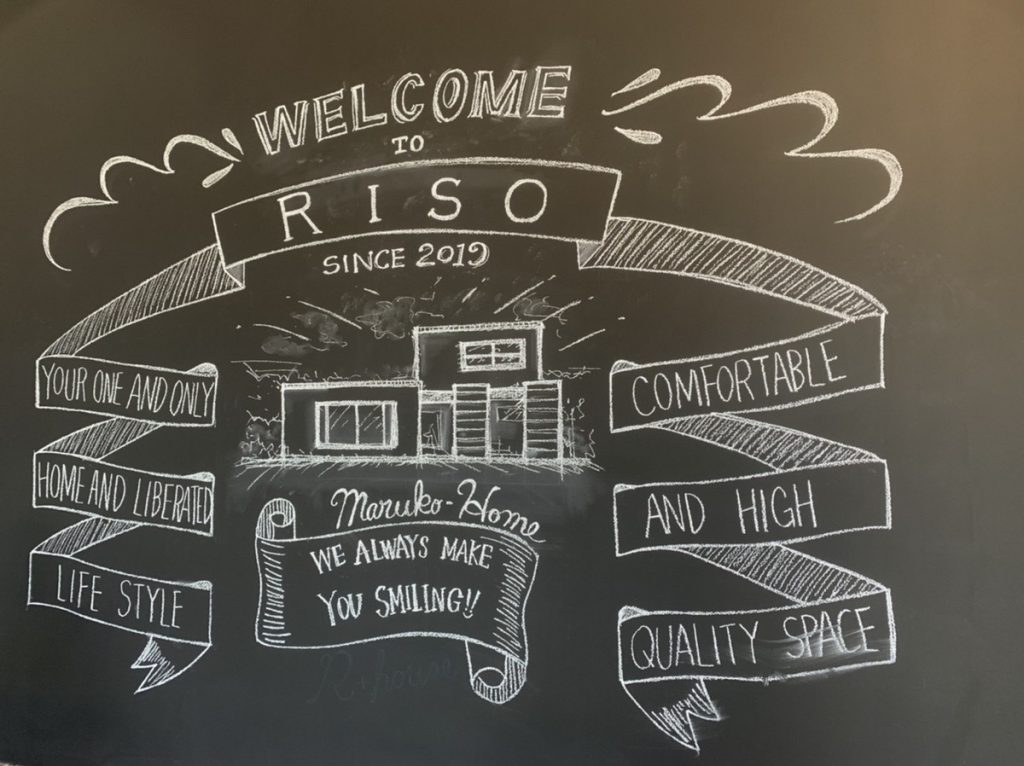 WELCOME
TO
RISO
SINCE 2019
YOUR ONE AND ONLY
HOME AND LIBERATED
LIFE STYLE
COMFORTABLE
AND HIGH
QUALITY SPACE
Maruko-Home
WE ALWAYS MAKE
YOU SMILING!!
R+house